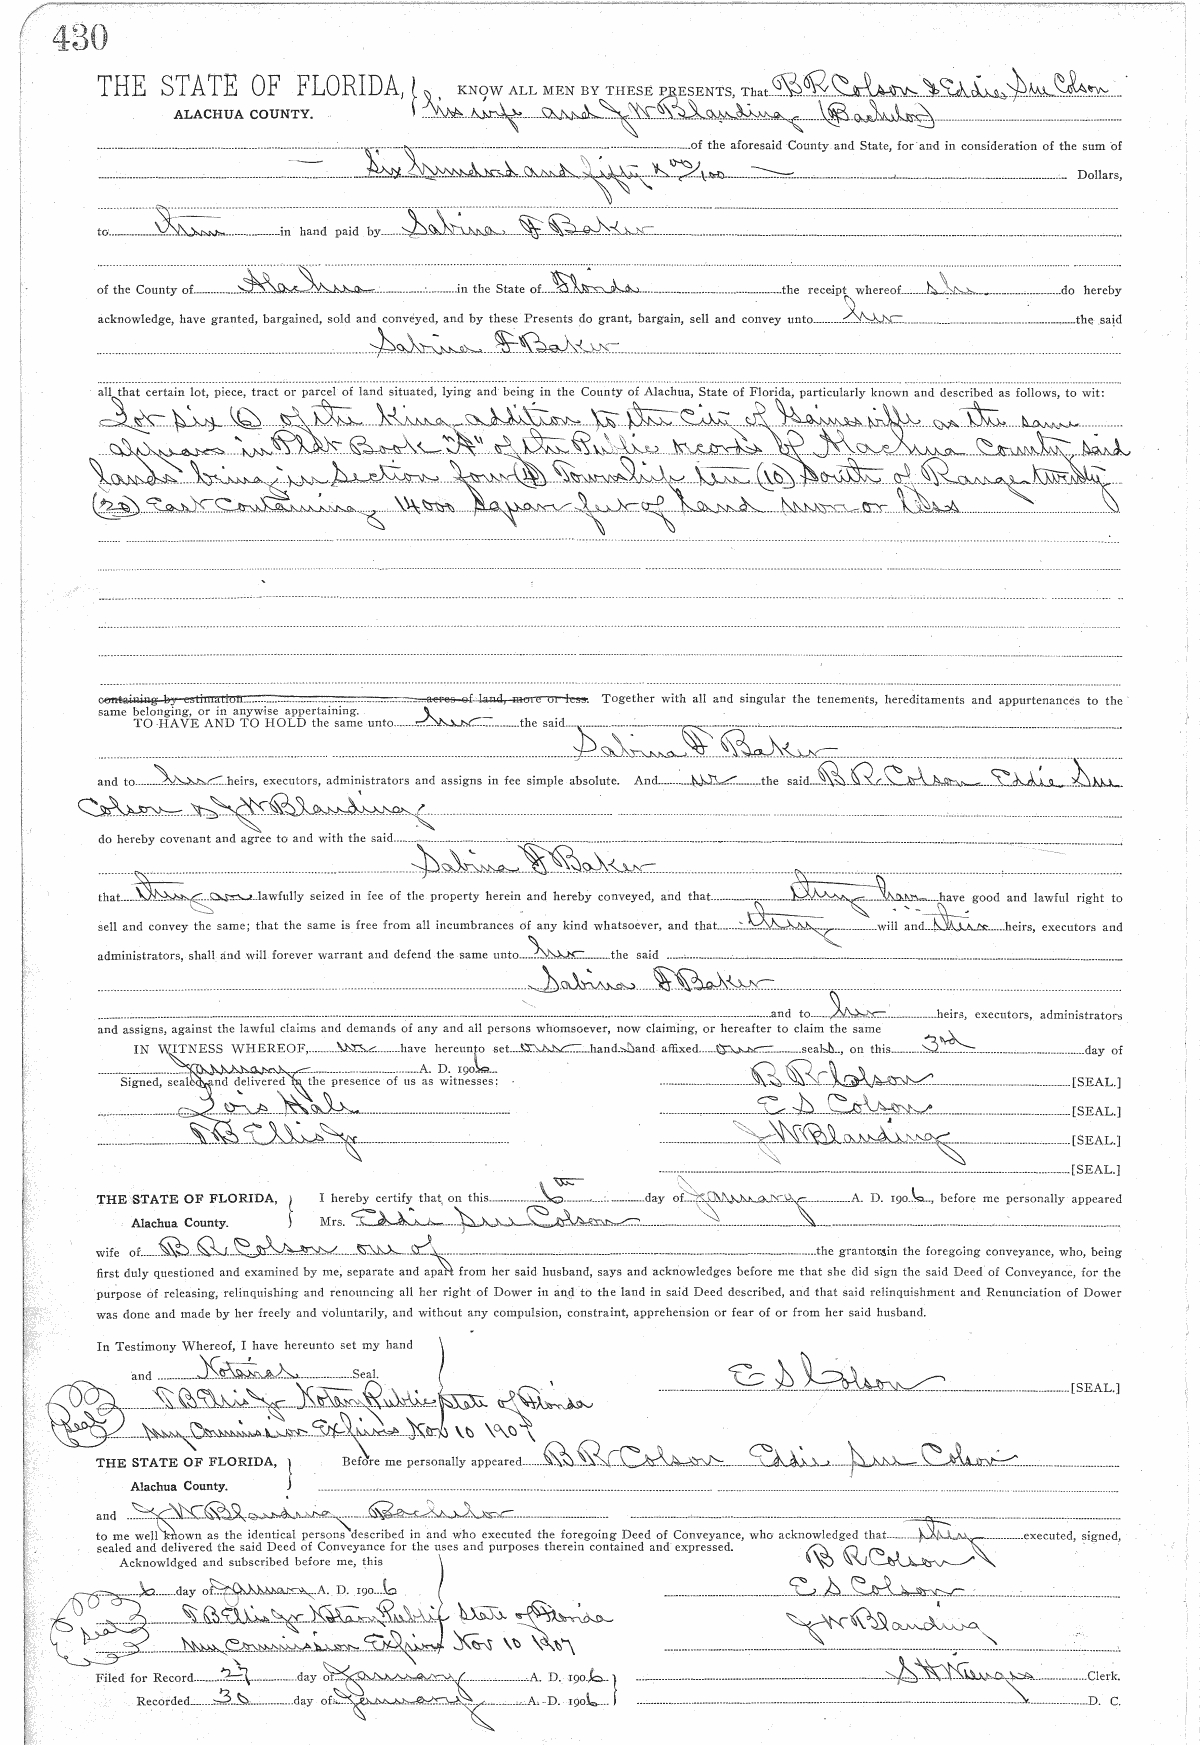 430
THE STATE OF FLORIDA, KNOW ALL MEN BY THESE PRESENTS, That B R Colson & Eddie Sue Colson
ALACHUA COUNTY. his wife and J W Blanding (Bachelor)
of the aforesaid County and State, for and in consideration of the sum of
— Six hundred and fifty & 00/100 — Dollars,
to them in hand paid by Sabina F Baker
of the County of Alachua in the State of Florida the receipt whereof she do hereby
acknowledge, have granted, bargained, sold and conveyed, and by these Presents do grant, bargain, sell and convey unto her the said
Sabina F Baker
all that certain lot, piece, tract or parcel of land situated, lying and being in the County of Alachua, State of Florida, particularly known and described as follows, to wit:
Lot six (6) of the King addition to the City of Gainesville as the same
appears in Plat Book "A" of the Public records of Alachua County, said
lands being in Section four (4) Township ten (10) South of Range twenty
(20) East Containing 14000 Square feet of land more or less
containing by estimation acres of land, more or less. Together with all and singular the tenements, hereditaments and appurtenances to the
same belonging, or in anywise appertaining.
TO HAVE AND TO HOLD the same unto her the said
Sabina F Baker
and to her heirs, executors, administrators and assigns in fee simple absolute. And we the said B R Colson Eddie Sue
Colson & J W Blanding
do hereby covenant and agree to and with the said
Sabina F Baker
that they are lawfully seized in fee of the property herein and hereby conveyed, and that they have have good and lawful right to
sell and convey the same; that the same is free from all incumbrances of any kind whatsoever, and that they will and their heirs, executors and
administrators, shall and will forever warrant and defend the same unto her the said
Sabina F Baker
and to her heirs, executors, administrators
and assigns, against the lawful claims and demands of any and all persons whomsoever, now claiming, or hereafter to claim the same
IN WITNESS WHEREOF, we have hereunto set our hands and affixed our seals, on this 3rd day of
January A. D. 1906
Signed, sealed and delivered in the presence of us as witnesses: B R Colson [SEAL.]
Lois Hale E S Colson [SEAL.]
T B Ellis Jr J W Blanding [SEAL.]
[SEAL.]
THE STATE OF FLORIDA, I hereby certify that on this 6th day of January A. D. 1906, before me personally appeared
Alachua County. Mrs. Eddie Sue Colson
wife of B R Colson one of the grantors in the foregoing conveyance, who, being
first duly questioned and examined by me, separate and apart from her said husband, says and acknowledges before me that she did sign the said Deed of Conveyance, for the
purpose of releasing, relinquishing and renouncing all her right of Dower in and to the land in said Deed described, and that said relinquishment and Renunciation of Dower
was done and made by her freely and voluntarily, and without any compulsion, constraint, apprehension or fear of or from her said husband.
In Testimony Whereof, I have hereunto set my hand
and Notarial Seal. E S Colson [SEAL.]
T B Ellis Jr Notary Public State of Florida
Seal My Commission Expires Nov 10 1907
THE STATE OF FLORIDA, Before me personally appeared B R Colson Eddie Sue Colson
Alachua County.
and J W Blanding Bachelor
to me well known as the identical persons described in and who executed the foregoing Deed of Conveyance, who acknowledged that they executed, signed,
sealed and delivered the said Deed of Conveyance for the uses and purposes therein contained and expressed.
Acknowldged and subscribed before me, this B R Colson
6 day of January A. D. 1906 E S Colson
T B Ellis Jr Notary Public State of Florida J W Blanding
Seal My Commission Expires Nov 10 1907
Filed for Record 27 day of January A. D. 1906 S H Wienges Clerk.
Recorded 30 day of January A. D. 1906 D. C.